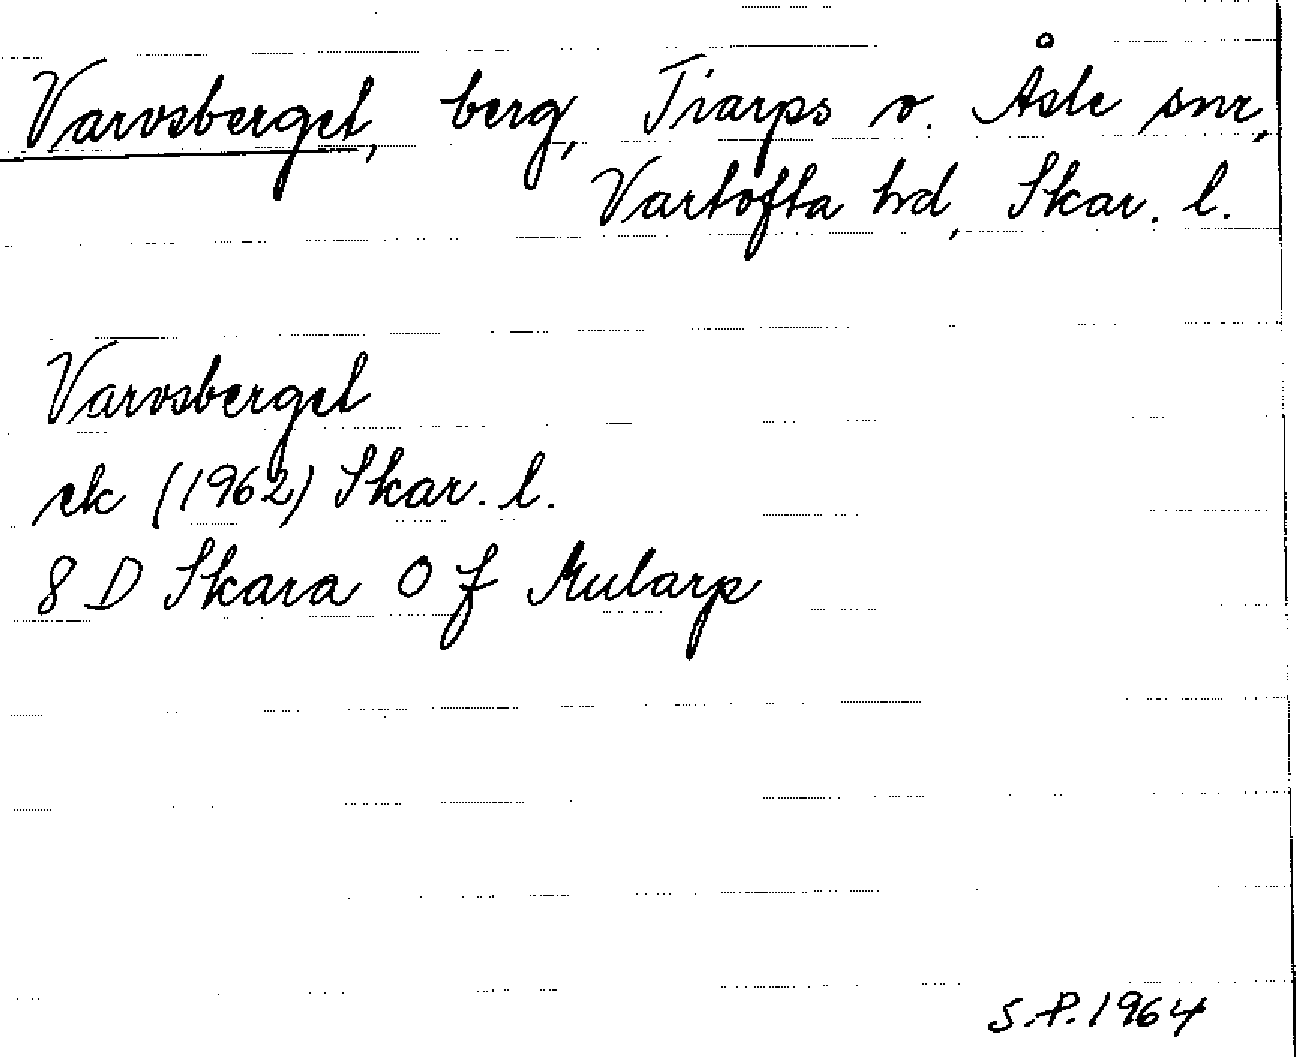 Varvsberget, berg, Tiarps o. Åsle snr,
Vartofta hd, Skar. l.
Varvsberget
ek (1962) Skar. l.
8 D Skara 0 f Mularp
S.P. 1964